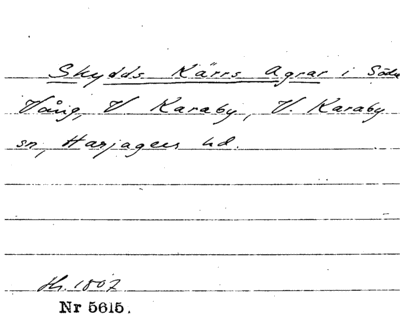 Skydds Kärrs Agrar i Söde
Vång, V Karaby, V. Karaby
sn, Harjagers hd.
Hr. 1807
Nr 5615.